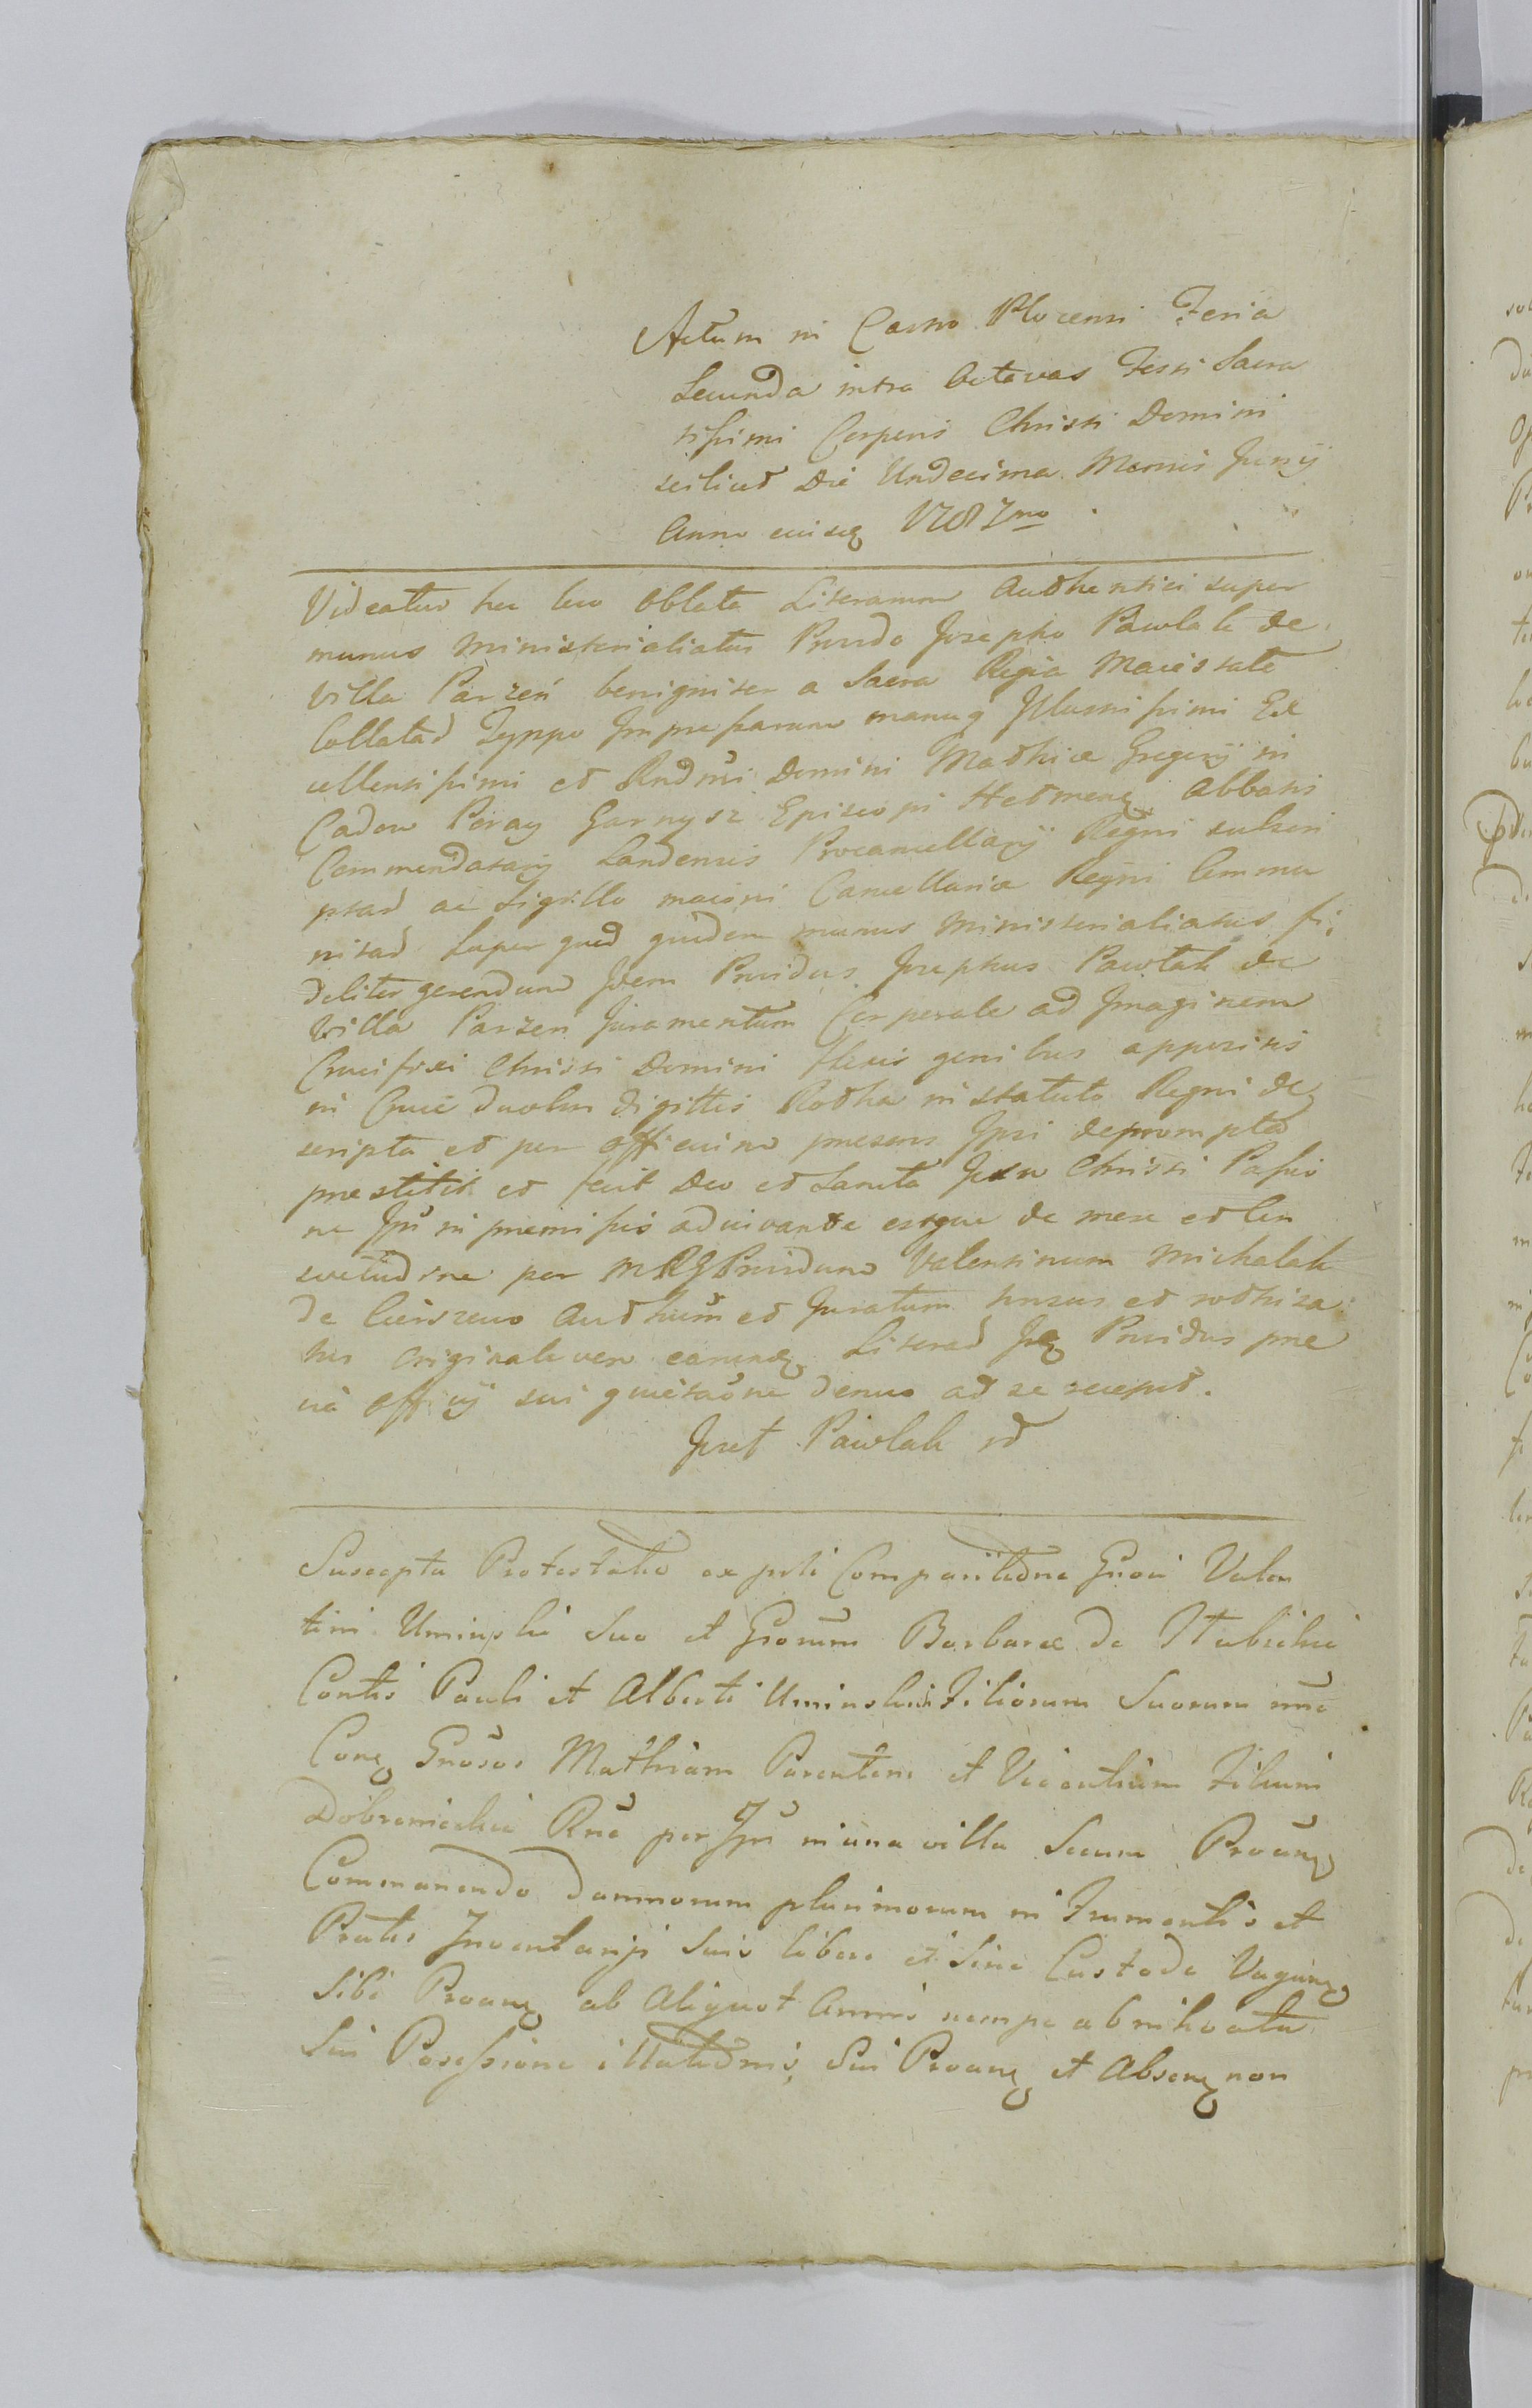 Actum in Castro Plocensi Feria
Secunda intra Octavas Festi Sacra
tissimi Corporis Christi Domini
scilicet Die Undecima Mensis Junij
Anno eiusq 1787mo
Videatur hic loco Oblata Literarum Authentici super
munus Ministerialiatus Provido Josepho Pawlak de
Villa Parzeń benigniter a Sacra Regia Maiestate
Collatad Typpo Impressarum manuq Illustrissimi Ex
cellentissimi et Rndmi Domini Mathiæ Gregorij in
Cadow Poray Garnysz Episcopi Abbatis
Commendatarij Landensis Procancellarij Regni subscri
ptad ac Sigillo maiori Cancellariæ Regni Commu
nitad Super quod quidem munus Ministerialiatus fi;
deliter gerendum Idem Providus Josephus Pawlak de
Villa Parzen Juramentum Corporale ad Imaginem
Crucifixi Christi Domini flexis genibus appositis
in Cruce duobus digittis Rotha in Statuto Regni de
scripta et per officium presens Ipsi deprompta
prestitit et fecit Deo et Sancta Jesu Christi Passio
ne Ipsi in premissis adiuvante estque de more et Con
svetudine per MRG Providum Valentinum Michalak
de authum et Juratum et rothiza
tus Originale vero earundq Literad Idq Providus præ
via officij sui quietatione denuo ad se recepit.
Jozef Pawlak
Suscepta Protestatio ex psti Comparitione Gnosi Valen
tini Uminski Suo et Gsorum Barbaræ de
Contis Pauli et Alberti Uminskich Filiorum Suorum nne
Conq Gnosos Mathiam Parentem et Vicentium Filium
Dobrzenieckie Rne per Ipsi in una villa Secum Proanq
Commanendo damnorum plurimorum in Frumentis et
Pratis Inventarijs Suis libere et Sine Custode Vaganq
Sibi Proanq ab Aliquot Annis nempe ab
Sui Possessione illatidnis, Sui Proanq et Absenq non